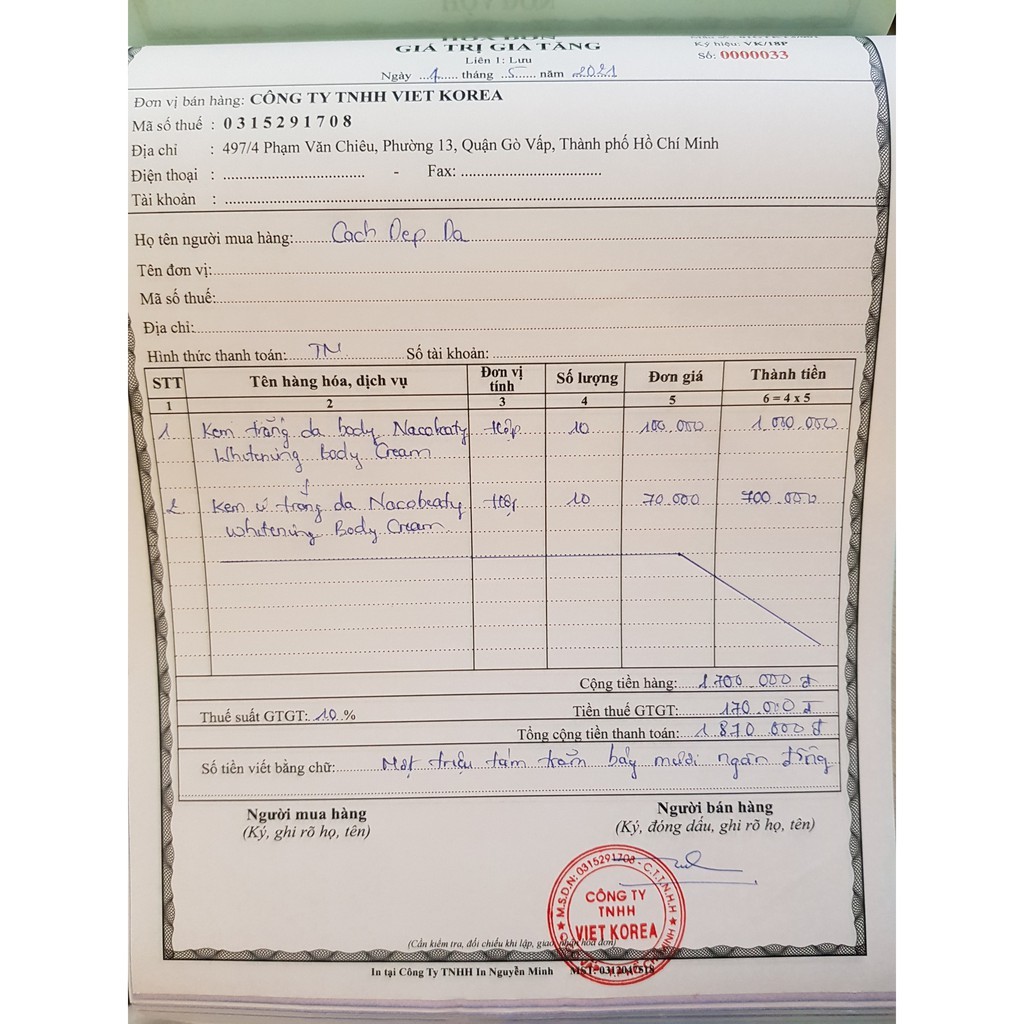 HÓA ĐƠN
GIÁ TRỊ GIA TĂNG
Liên 1: Lưu
Ngày 1 tháng 5 năm 2021
Ký hiệu: VK/18P
Số: 0000033
Đơn vị bán hàng: CÔNG TY TNHH VIET KOREA
Mã số thuế : 0315291708
Địa chỉ : 497/4 Phạm Văn Chiêu, Phường 13, Quận Gò Vấp, Thành phố Hồ Chí Minh
Điện thoại : - Fax:
Tài khoản :
Họ tên người mua hàng: Cach Dep Da
Tên đơn vị:
Mã số thuế:
Địa chỉ:
Hình thức thanh toán: TM Số tài khoản:
STT Tên hàng hóa, dịch vụ Đơn vị tính Số lượng Đơn giá Thành tiền
1 2 3 4 5 6 = 4 x 5
1 Kem trắng da body Nacobeaty Hộp 10 100.000 1.000.000
Whitening Body Cream
2 Kem ủ trắng da Nacobeaty Hộp 10 70.000 700.000
Whitening Body Cream
Cộng tiền hàng: 1.700.000 đ
Thuế suất GTGT: 10 % Tiền thuế GTGT: 170.000 đ
Tổng cộng tiền thanh toán: 1.870.000 đ
Số tiền viết bằng chữ: Một triệu tám trăm bảy mươi ngàn đồng
Người mua hàng Người bán hàng
(Ký, ghi rõ họ, tên) (Ký, đóng dấu, ghi rõ họ, tên)
M.S.D.N: 0315291708 - C.T.T.N.H.H
CÔNG TY
TNHH
VIET KOREA
(Cần kiểm tra, đối chiếu khi lập, giao, nhận hóa đơn)
In tại Công Ty TNHH In Nguyễn Minh MST: 0312047618